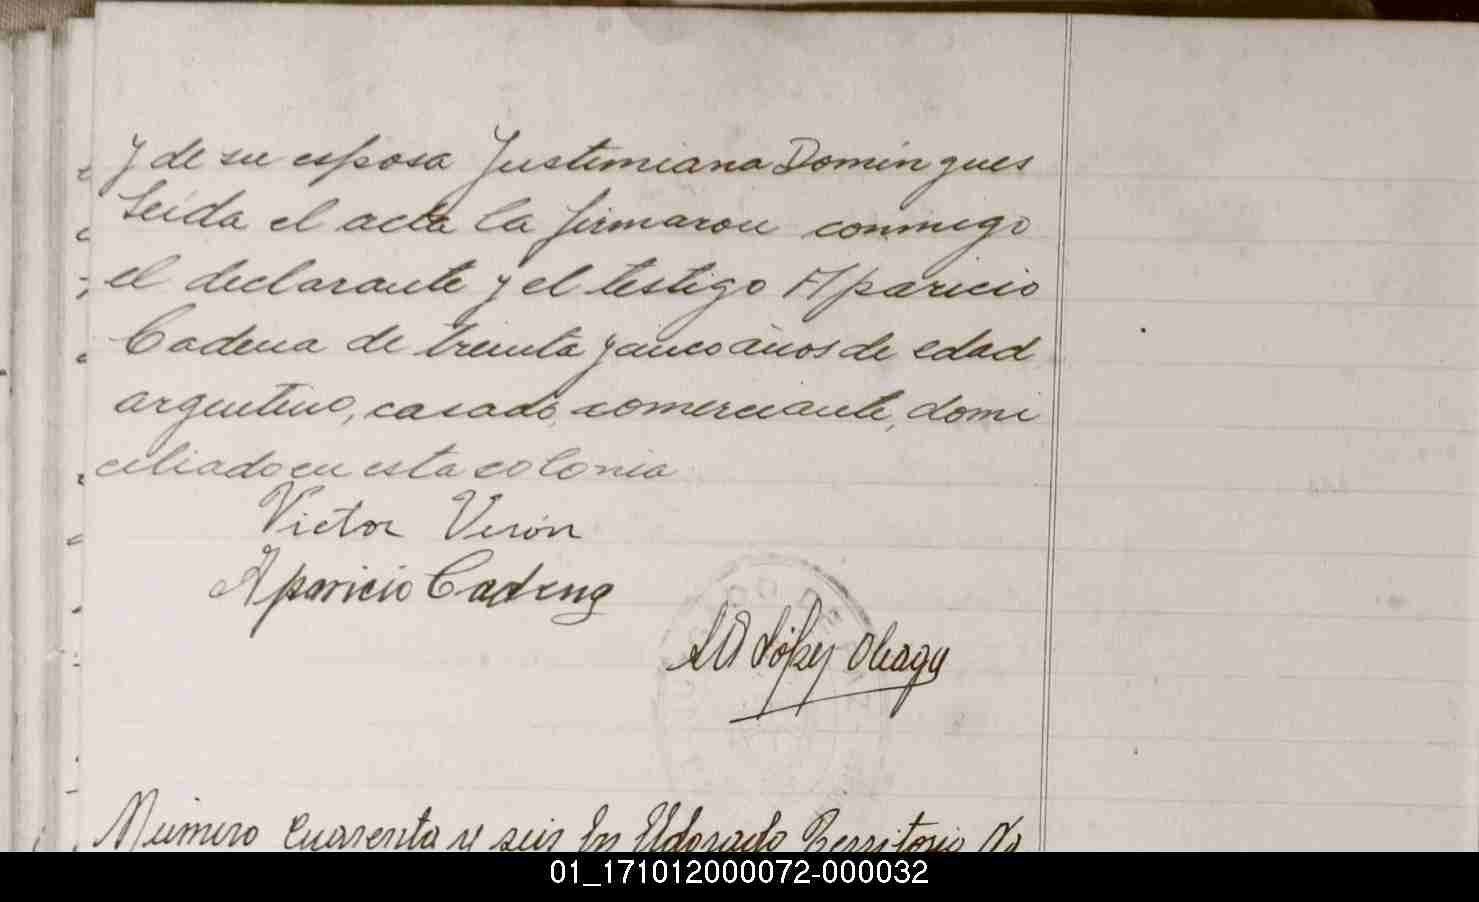 y de su esposa Justimiana Domingues
Leída el acta la firmaron conmigo
el declarante y el testigo Aparicio
Cadena de treinta y cinco años de edad
argentino, casado, comerciante, domi
ciliado en esta colonia
Victor Verón
Aparicio Cadena
López Oleaga
Número cuarenta y seis En Eldorado Territorio Na
01_171012000072-000032